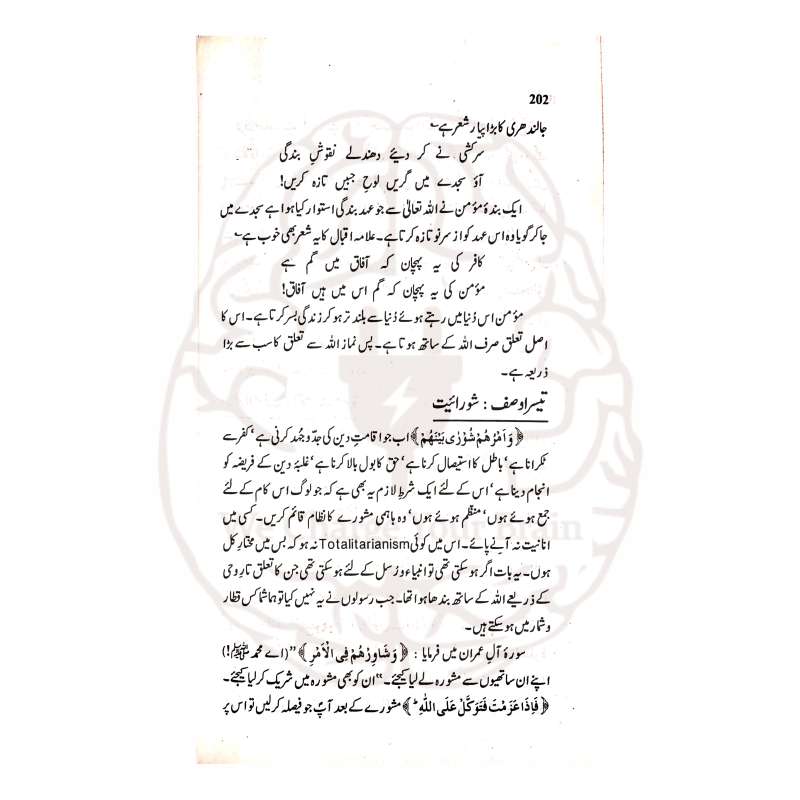 202
جالندھری کا بڑا پیارا شعر ہے ؎
سرکشی نے کر دیئے دھندلے نقوشِ بندگی
آؤ سجدے میں گریں لوحِ جبیں تازہ کریں!
ایک بندۂ مؤمن نے اللہ تعالیٰ سے جو عہد بندگی استوار کیا ہوا ہے سجدے میں
جا کر گویا وہ اس عہد کو از سر نو تازہ کرتا ہے۔ علامہ اقبال کا یہ شعر بھی خوب ہے ؎
کافر کی یہ پہچان کہ آفاق میں گم ہے
مؤمن کی یہ پہچان کہ گم اس میں ہیں آفاق!
مؤمن اس دُنیا میں رہتے ہوئے دُنیا سے بلند تر ہو کر زندگی بسر کرتا ہے۔ اس کا
اصل تعلق صرف اللہ کے ساتھ ہوتا ہے۔ پس نماز اللہ سے تعلق کا سب سے بڑا
ذریعہ ہے۔
تیسرا وصف : شورائیت
﴿وَاَمْرُهُمْ شُوْرٰى بَيْنَهُمْ﴾ اب جو اقامتِ دین کی جدّوجُہد کرنی ہے‘ کفر سے
ٹکرانا ہے‘ باطل کا استیصال کرنا ہے‘ حق کا بول بالا کرنا ہے‘ غلبۂ دین کے فریضہ کو
انجام دینا ہے‘ اس کے لئے ایک شرطِ لازم یہ بھی ہے کہ جو لوگ اس کام کے لئے
جمع ہوئے ہوں‘ منظم ہوئے ہوں‘ وہ باہمی مشورے کا نظام قائم کریں۔ کسی میں
انانیت نہ آنے پائے۔ اس میں کوئی Totalitarianism نہ ہو کہ بس میں مختارِ کل
ہوں۔ یہ بات اگر ہو سکتی تھی تو انبیاء و رُسل کے لئے ہو سکتی تھی جن کا تعلق تارِ وحی
کے ذریعے اللہ کے ساتھ بندھا ہوا تھا۔ جب رسولوں نے یہ نہیں کیا تو ہما شما کس قطار
و شمار میں ہو سکتے ہیں۔
سورۂ آلِ عمران میں فرمایا : ﴿وَشَاوِرْهُمْ فِى الْاَمْرِ﴾ ”(اے محمد ﷺ!)
اپنے ان ساتھیوں سے مشورہ لے لیا کیجئے۔“ ان کو بھی مشورہ میں شریک کر لیا کیجئے۔
﴿فَاِذَا عَزَمْتَ فَتَوَكَّلْ عَلَى اللّٰهِ ۭ﴾ مشورے کے بعد آپؐ جو فیصلہ کر لیں تو اس پر